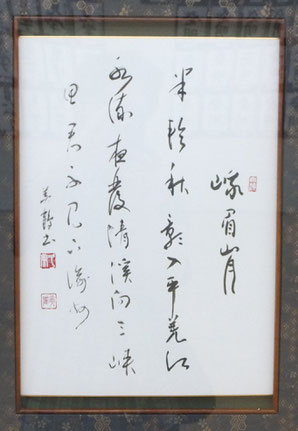 峨眉山月
半輪秋影入平羌江
水流夜發清溪向三峡
思君不見下渝州